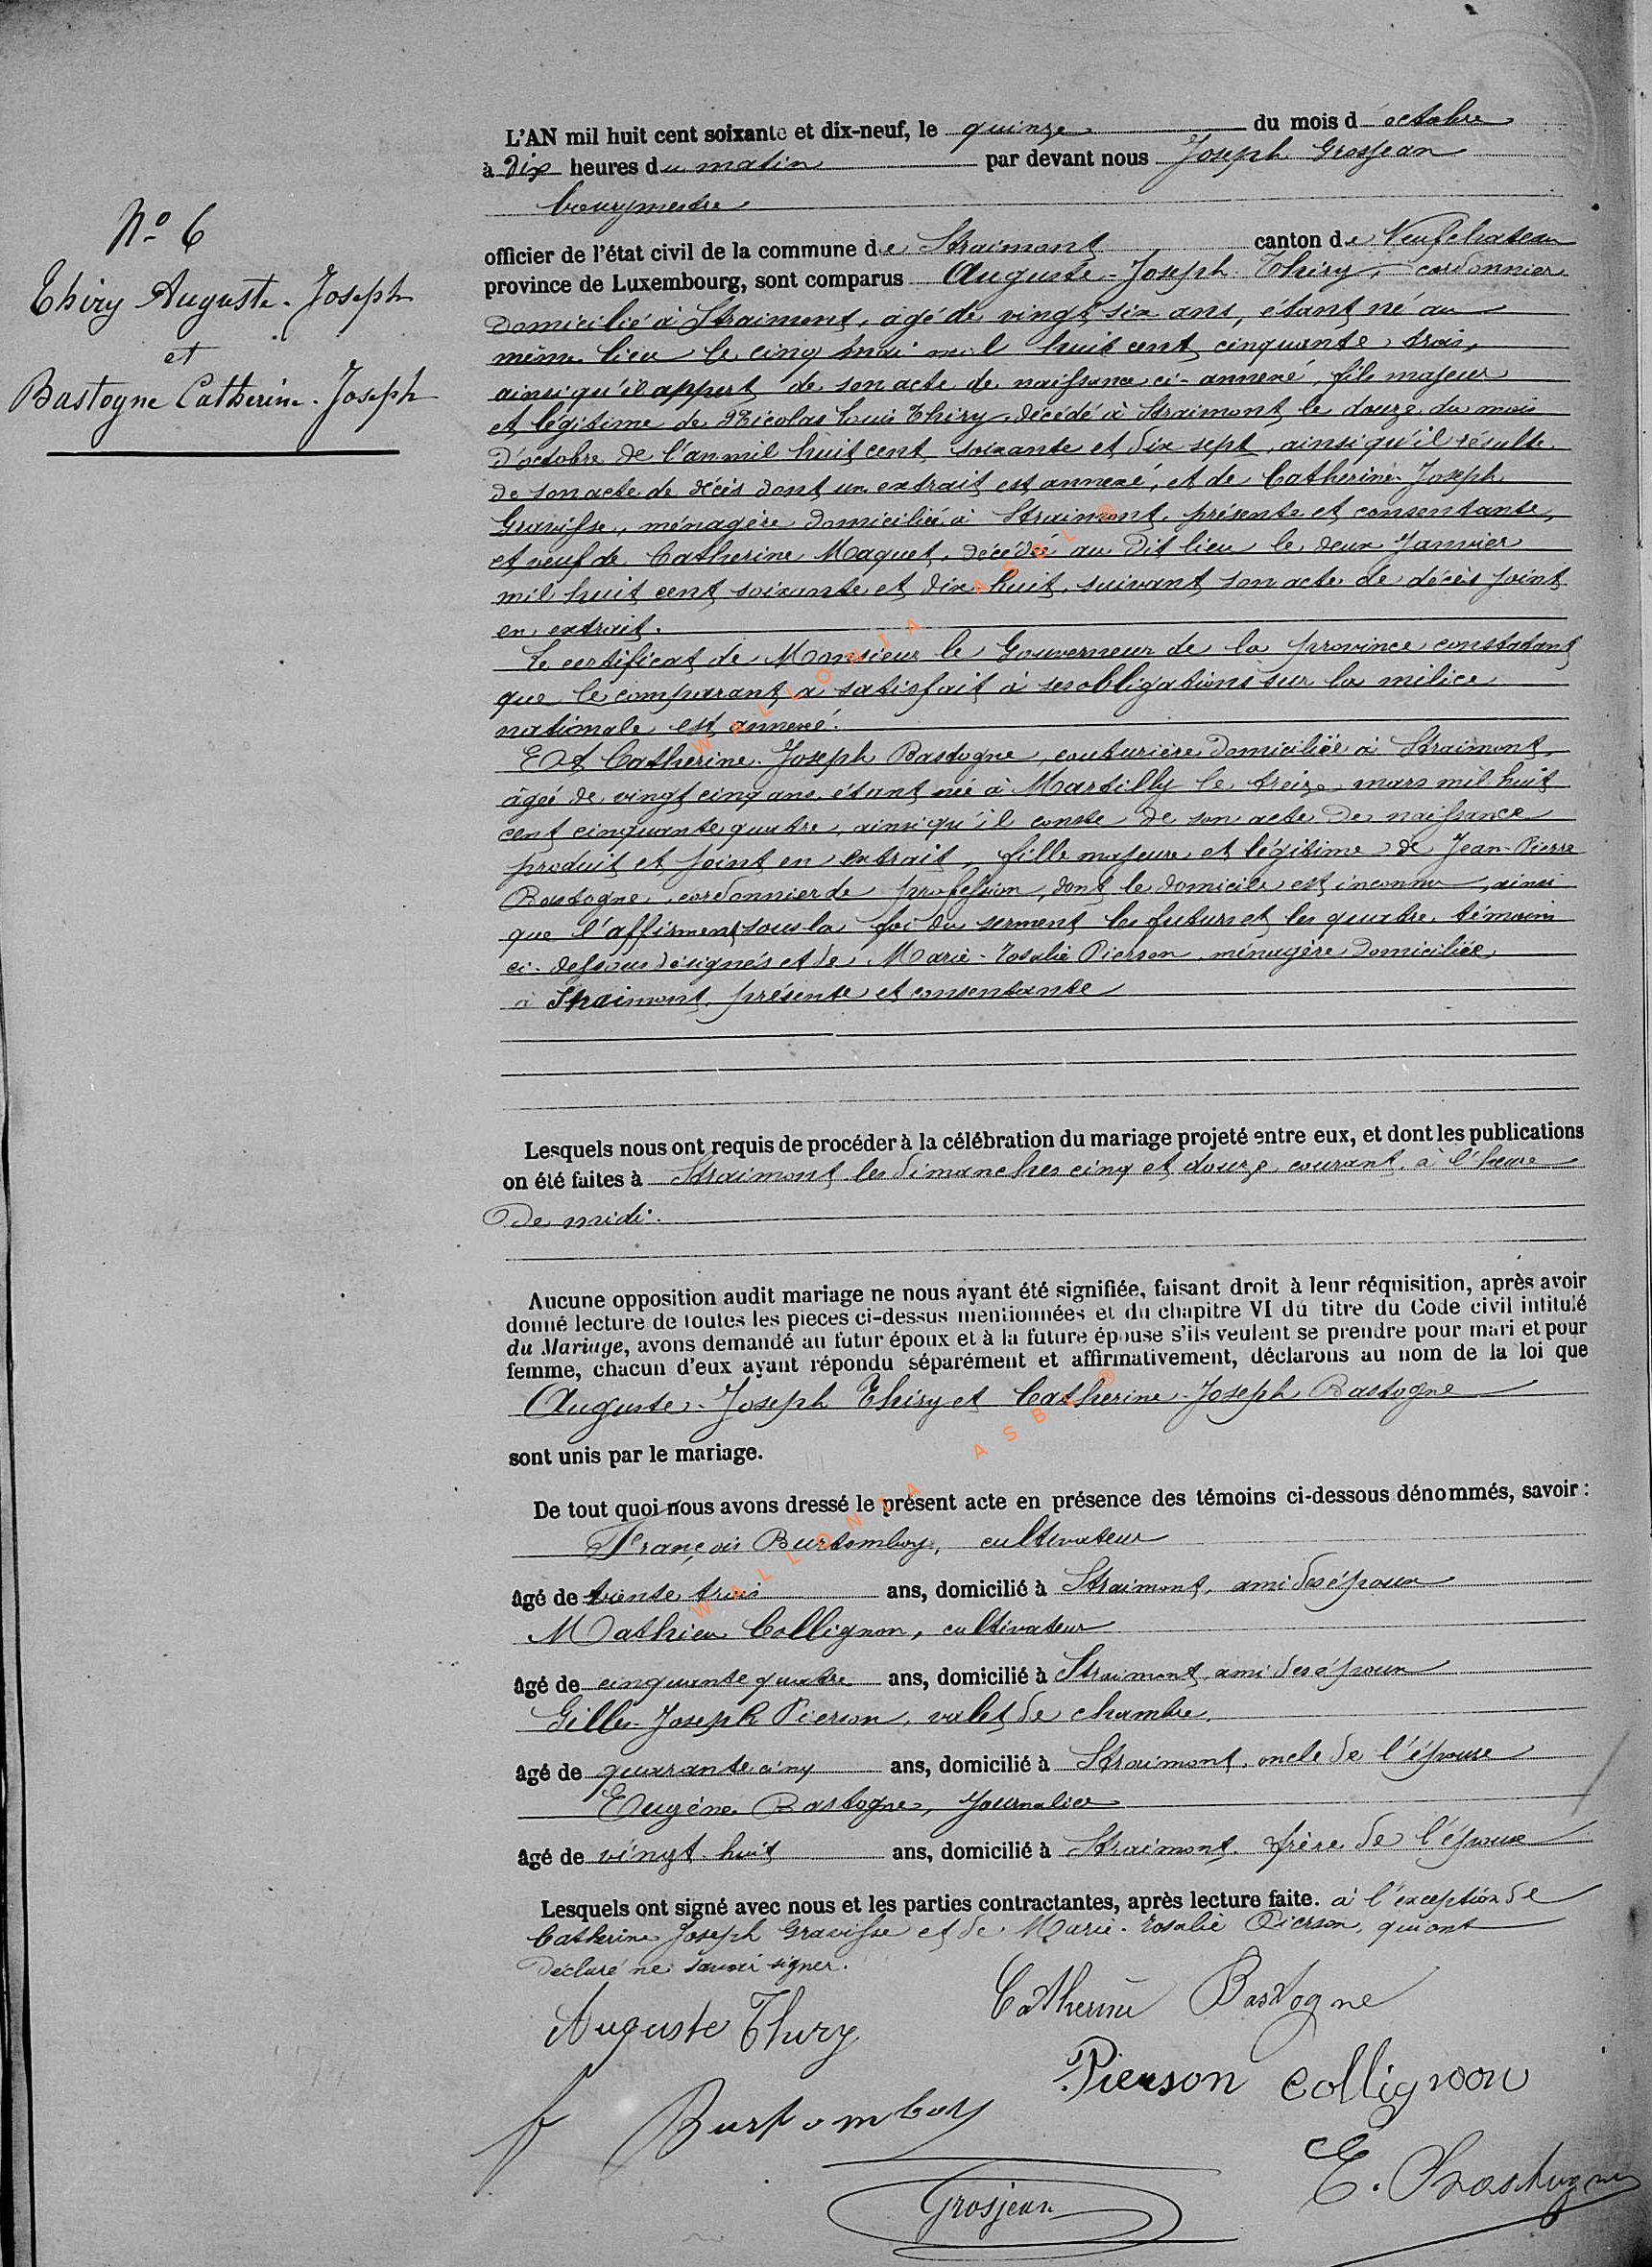 N° 6
Thiry Auguste-Joseph
et
Bastogne Catherine-Joseph
L'AN mil huit cent soixante et dix-neuf, le quinze du mois d'octobre
à dix heures du matin par devant nous Joseph Grosjean
bourgmestre
officier de l'état civil de la commune de Straimont canton de Neufchateau
province de Luxembourg, sont comparus Auguste-Joseph Thiry, cordonnier
domicilié à Straimont, âgé de vingt six ans, étant né au
même lieu le cinq mai mil huit cent cinquante trois,
ainsi qu'il appert de son acte de naissance ci-annexé, fils majeur
et légitime de Nicolas Louis Thiry décédé à Straimont le douze du mois
d'octobre de l'an mil huit cent soixante et dix sept, ainsi qu'il résulte
de son acte de décès dont un extrait est annexé, et de Catherine-Joseph
Gravisse, ménagère domiciliée à Straimont, présente et consentante,
et veuf de Catherine Maquet, décédée au dit lieu le deux Janvier
mil huit cent soixante et dix huit, suivant son acte de décès joint
en extrait.
Le certificat de Monsieur le Gouverneur de la province constatant
que le comparant a satisfait à ses obligations sur la milice
nationale est annexé.
Et Catherine-Joseph Bastogne, couturière domiciliée à Straimont,
âgée de vingt cinq ans, étant née à Martilly le treize mars mil huit
cent cinquante quatre, ainsi qu'il conste de son acte de naissance
produit et joint en extrait, fille majeure et légitime de Jean-Pierre
Bastogne, cordonnier de profession, dont le domicile est inconnu, ainsi
que l'affirment sous la foi du serment les futurs et les quatre témoins
ci-dessous désignés et de Marie-Rosalie Pierson, ménagère domiciliée
à Straimont, présente et consentante
Lesquels nous ont requis de procéder à la célébration du mariage projeté entre eux, et dont les publications
on été faites à Straimont les dimanches cinq et douze courant, à l'heure
de midi.
Aucune opposition audit mariage ne nous ayant été signifiée, faisant droit à leur réquisition, après avoir
donné lecture de toutes les pieces ci-dessus mentionnées et du chapitre VI du titre du Code civil intitulé
du Mariage, avons demandé au futur époux et à la future épouse s'ils veulent se prendre pour mari et pour
femme, chacun d'eux ayant répondu séparément et affirmativement, déclarons au nom de la loi que
Auguste-Joseph Thiry et Catherine-Joseph Bastogne
sont unis par le mariage.
De tout quoi nous avons dressé le présent acte en présence des témoins ci-dessous dénommés, savoir :
François Burtomboy, cultivateur
âgé de trente trois ans, domicilié à Straimont, ami des époux
Mathieu Collignon, cultivateur
âgé de cinquante quatre ans, domicilié à Straimont, ami des époux
Gilles-Joseph Pierson, valet de chambre,
âgé de quarante cinq ans, domicilié à Straimont, oncle de l'épouse
Eugène Bastogne, journalier
âgé de vingt-huit ans, domicilié à Straimont, frère de l'épouse
Lesquels ont signé avec nous et les parties contractantes, après lecture faite. à l'exception de
Catherine Joseph Gravisse et de Marie-Rosalie Pierson, qui ont
déclaré ne savoir signer.
Auguste Thiry
Catherine Bastogne
Pierson Collignon
f Burtomboy
E. Bastogne
Grosjean
WALLONIA ASBL ®
WALLONIA ASBL ®